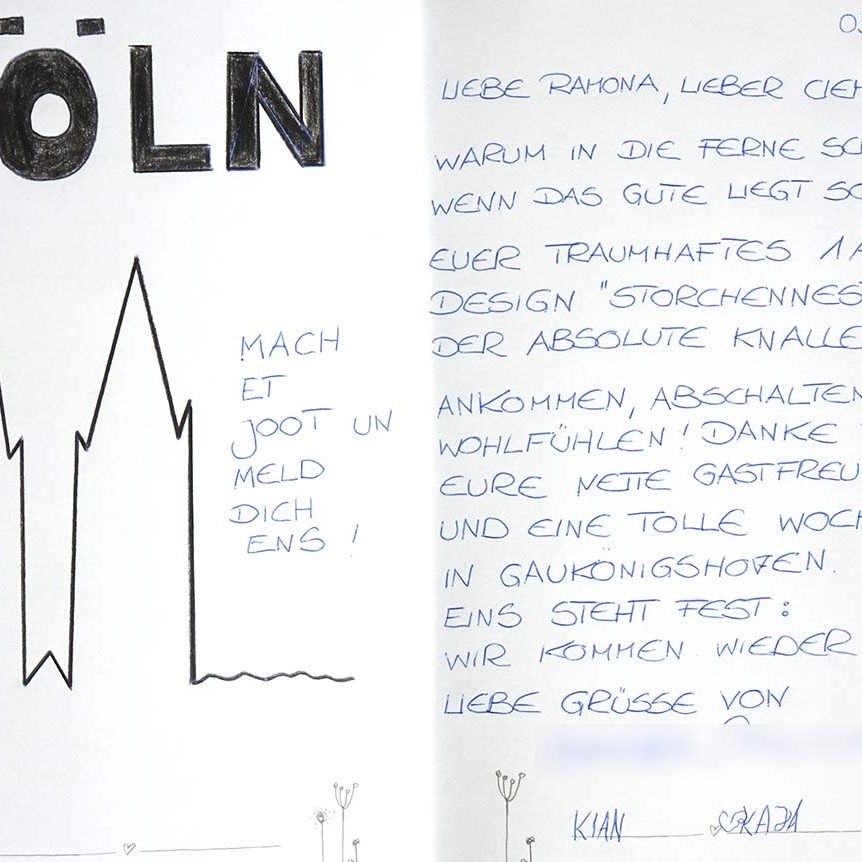 ÖLN
MACH
ET
JOOT UN
MELD
DICH
ENS !
LIEBE RAMONA, LIEBER
WARUM IN DIE FERNE
WENN DAS GUTE LIEGT
EUER TRAUMHAFTES 1A
DESIGN "STORCHENNES
DER ABSOLUTE KNALLE
ANKOMMEN, ABSCHALTEN
WOHLFÜHLEN! DANKE
EURE NETTE GASTFREU
UND EINE TOLLE WOCH
IN GAUKÖNIGSHOFEN.
EINS STEHT FEST:
WIR KOMMEN WIEDER
LIEBE GRÜSSE VON
KIAN